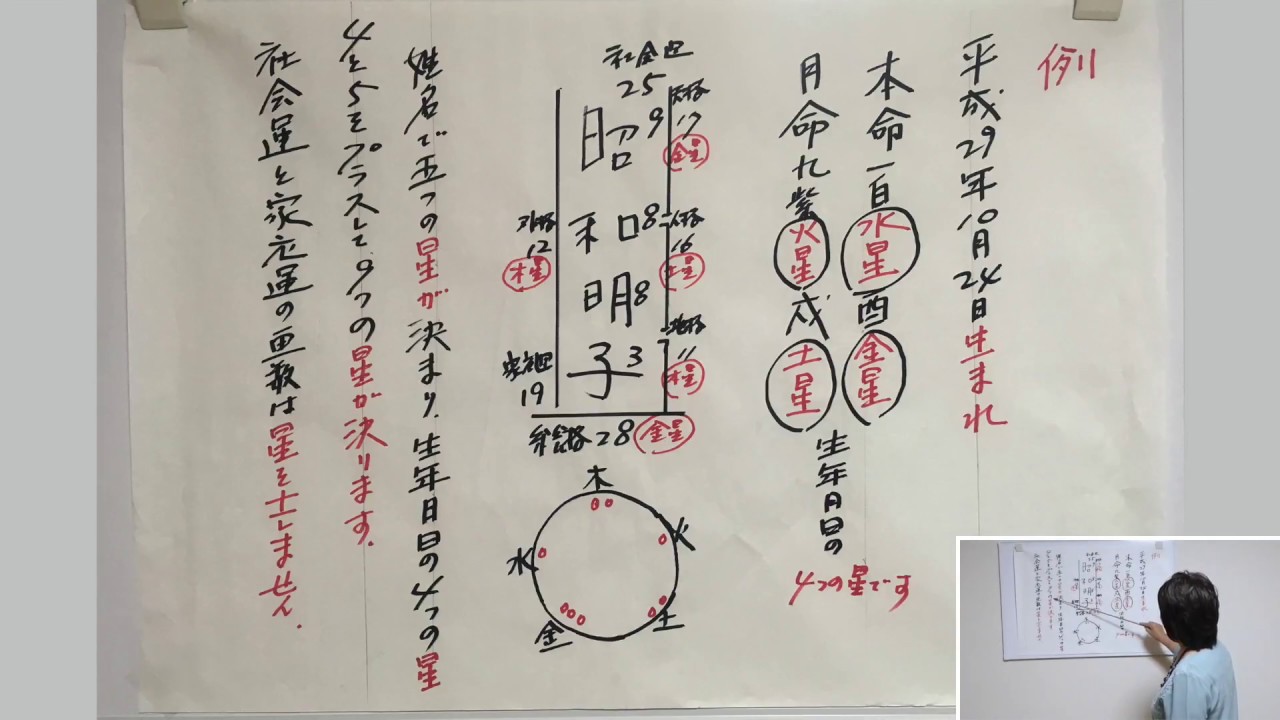 例
平成29年10月24日生まれ
本命一白水星 酉金星
月命九紫火星 戌土星
生年月日の
4つの星です
社会運
25
天格
17
金星
昭9
和8
明8
子3
人格
16
土星
地格
11
木星
外格
12
木星
家庭運
19
総格28 金星
木
火
土
金
水
姓名で五つの星が決まり、生年月日の4つの星
4と5をプラスして、9つの星が決ります。
社会運と家庭運の画数は星を出しません。